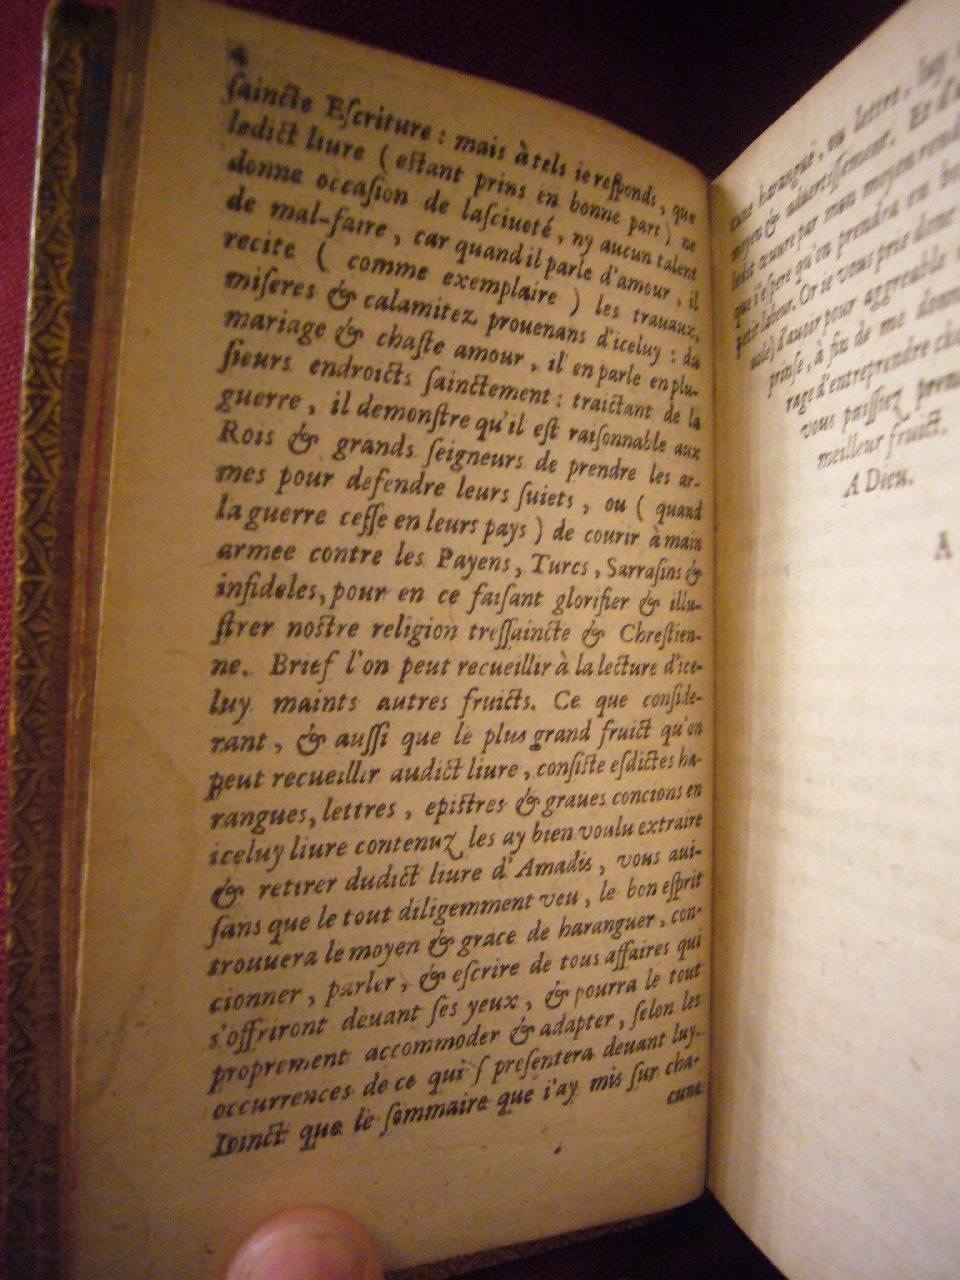 4
ſaincte Eſcriture : mais à tels ie reſponds, que
ledict liure ( eſtant prins en bonne part ) ne
donne occaſion de laſciueté, ny aucun talent
de mal-faire, car quand il parle d'amour, il
recite ( comme exemplaire ) les trauaux,
miſeres & calamitez prouenans d'iceluy : du
mariage & chaſte amour, il en parle en plu-
ſieurs endroicts ſainctement : traictant de la
guerre, il demonſtre qu'il eſt raiſonnable aux
Rois & grands ſeigneurs de prendre les ar-
mes pour defendre leurs ſuiets, ou ( quand
la guerre ceſſe en leurs pays ) de courir à main
armee contre les Payens, Turcs, Sarraſins &
infideles, pour en ce faiſant glorifier & illu-
ſtrer noſtre religion treſſaincte & Chreſtien-
ne. Brief l'on peut recueillir à la lecture d'ice-
luy maints autres fruicts. Ce que conſide-
rant, & auſſi que le plus grand fruict qu'on
peut recueillir audict liure, conſiſte eſdictes ha-
rangues, lettres, epiſtres & graues concions en
iceluy liure contenuz les ay bien voulu extraire
& retirer dudict liure d'Amadis, vous aui-
ſans que le tout diligemment veu, le bon eſprit
trouuera le moyen & grace de haranguer, con-
cionner, parler, & eſcrire de tous affaires qui
s'offriront deuant ſes yeux, & pourra le tout
proprement accommoder & adapter, ſelon les
occurrences de ce qui ſ preſentera deuant luy.
Ioinct que le ſommaire que i'ay mis ſur cha-
cune
cune harangue, ou lettre, luy
moyen & aduertiſſement. Et d'a
ledit œuure par mon moyen rendu
que i'eſpere qu'on prendra en bo
petit labeur. Or ie vous prie donc
d'auoir pour aggreable
prinſe, à fin de me donne
rage d'entreprendre cho
vous puiſſiez prend
meilleur fruict.
A Dieu.
A